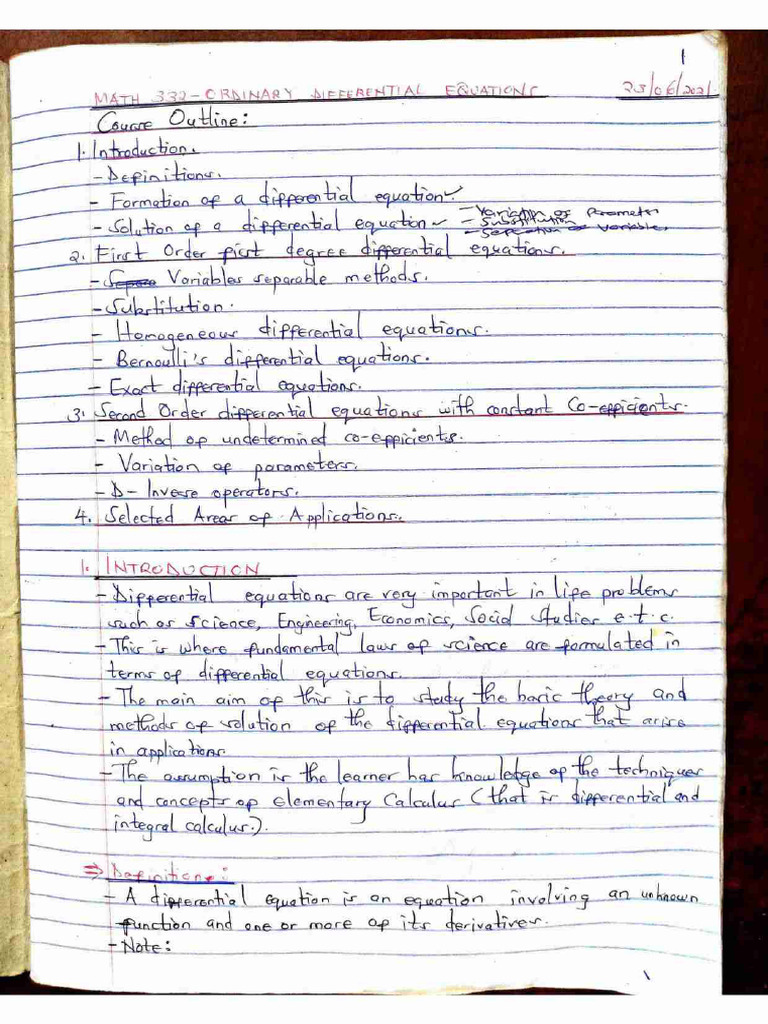 1
MATH 332 - ORDINARY DIFFERENTIAL EQUATIONS 23/06/2021
Course Outline:
1. Introduction.
- Definitions.
- Formation of a differential equation ✓
- Solution of a differential equation - Variation of Parameters
- Substitution
- Separation of Variables
2. First Order first degree differential equations.
- Variables separable methods.
- Substitution.
- Homogeneous differential equations.
- Bernoulli's differential equations.
- Exact differential equations.
3. Second Order differential equations with constant Co-efficients.
- Method of undetermined co-efficients.
- Variation of parameters.
- D- Inverse operators.
4. Selected Areas of Applications.
1. INTRODUCTION
- Differential equations are very important in life problems
such as science, Engineering, Economics, Social Studies e.t.c.
- This is where fundamental laws of science are formulated in
terms of differential equations.
- The main aim of this is to study the basic theory and
methods of solution of the differential equations that arise
in applications
- The assumption is the learner has knowledge of the techniques
and concepts of elementary Calculus (that is differential and
integral calculus.).
⇒ Definitions:
- A differential equation is an equation involving an unknown
function and one or more of its derivatives.
- Note: